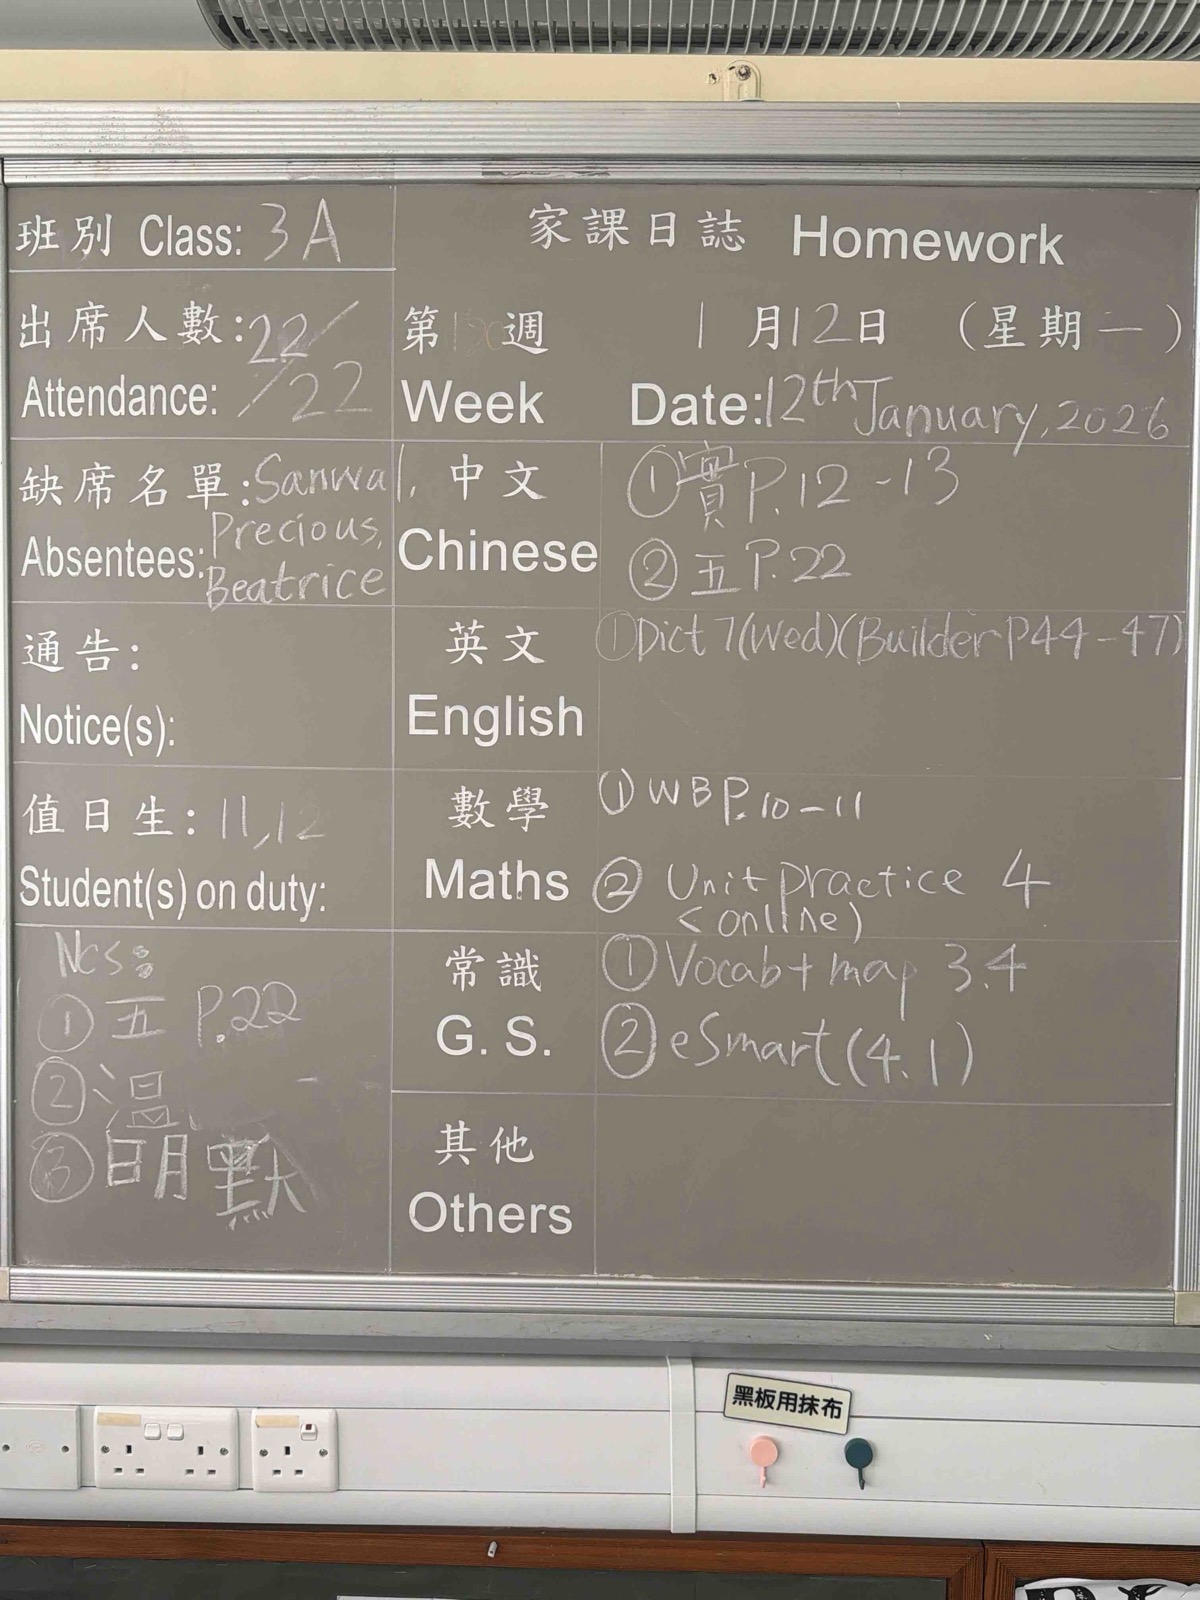 班別 Class: 3A
家課日誌 Homework
出席人數: 22/
Attendance: /22
第 週 1月12日 (星期一)
Week Date: 12th January, 2026
缺席名單: Sanwal,
Absentees: Precious,
Beatrice
中文 ①實 P.12-13
Chinese ②五 P.22
通告:
Notice(s):
英文 ①Dict 7(Wed)(Builder P44-47)
English
值日生: 11,12
Student(s) on duty:
數學 ① WB P.10-11
Maths ② Unit practice 4
<online)
NCS:
① 五 P.22
② 温
③ 明默
常識 ①Vocab+map 3.4
G. S. ②eSmart(4.1)
其他
Others
黑板用抹布